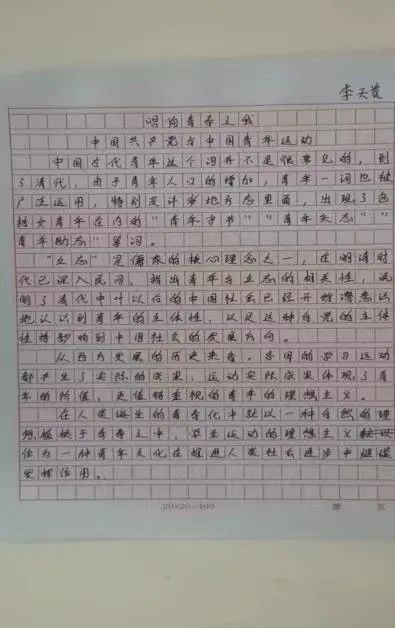 李天
唱响青春之我
中国共产党与中国青年运动
中国古代青年这个词并不是很常见的，到
了清代，由于青年人口的增加，青年一词也被
广泛运用，特别是许多地方志里面，出现了包
括女青年在内的“青年守节”“青年矢志”“
青年励志”等词。
“立志”是儒家的核心理念之一，在明清时
代已深入民间，指出青年与立志的相关性，说
明了清代中叶以后的中国社会已经开始潜意识
地认识到青年的主体性，以及这种自觉的主体
性将影响到中国社会的发展方向。
从西方发展的历史来看，各国的学习运动
都产生了实际的成果，运动实际成果体现了青
年的价值，更值得重视的青年的理想主义。
在人类诞生的青春化中就以一种自然的理
想植根于青春之中，学生运动的理想主义
作为一种青年文化在推进人类社会进步中继续
发挥作用。
20×20=400
第 页